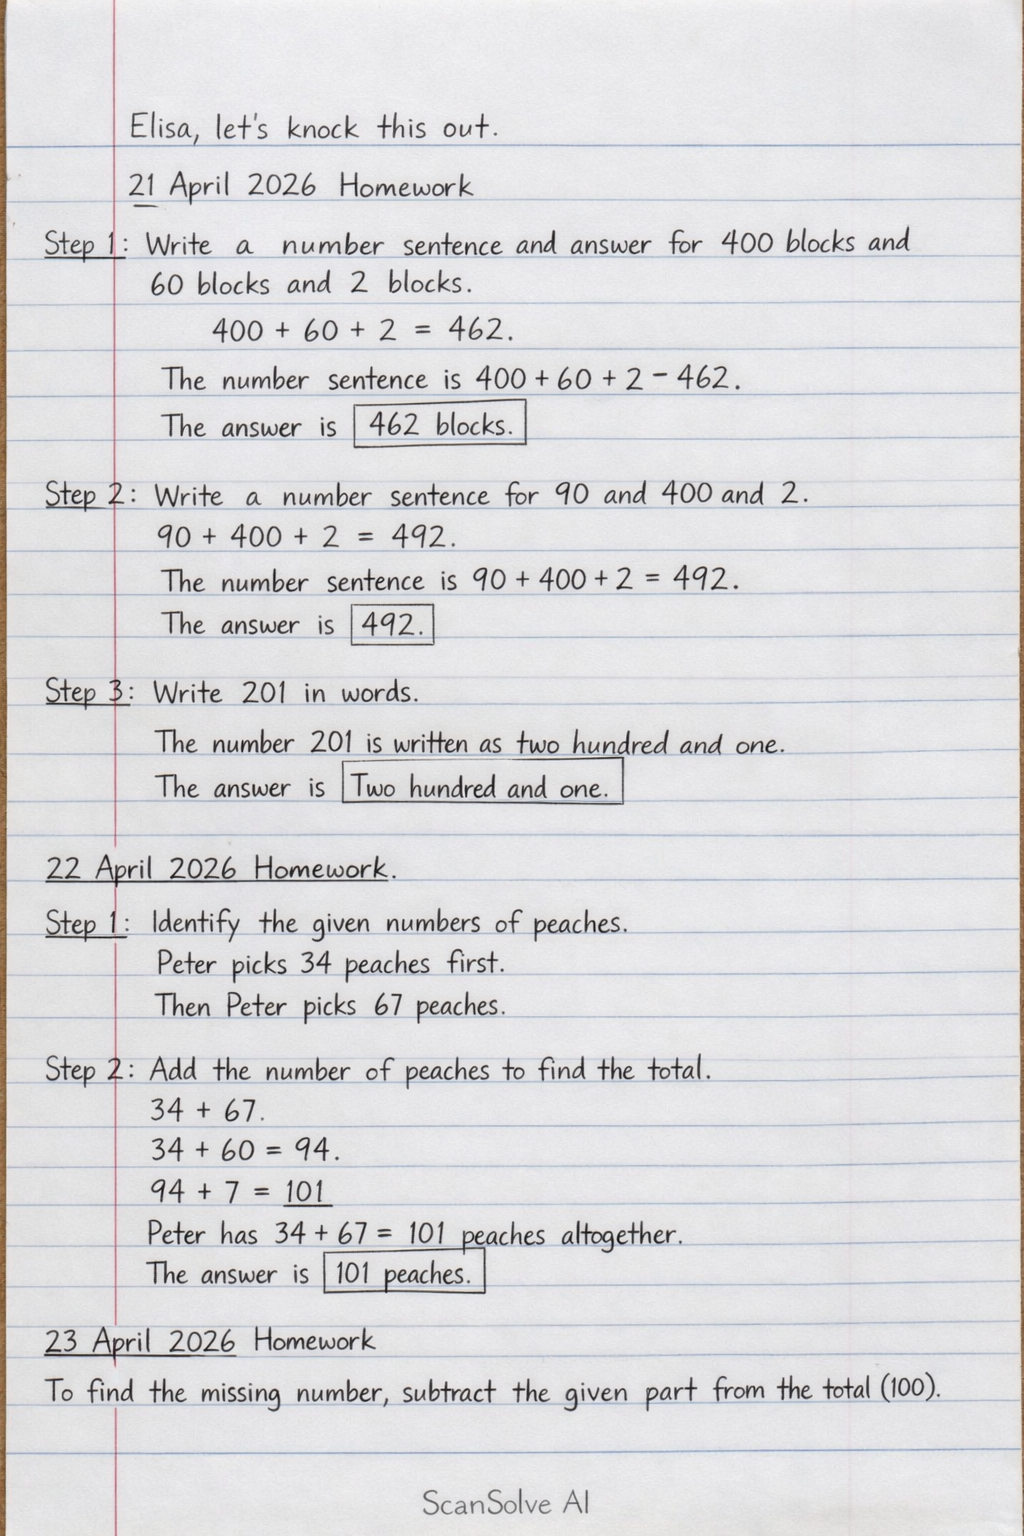 Elisa, let's knock this out.
21 April 2026 Homework
Step 1: Write a number sentence and answer for 400 blocks and
60 blocks and 2 blocks.
400 + 60 + 2 = 462.
The number sentence is 400 + 60 + 2 - 462.
The answer is 462 blocks.
Step 2: Write a number sentence for 90 and 400 and 2.
90 + 400 + 2 = 492.
The number sentence is 90 + 400 + 2 = 492.
The answer is 492.
Step 3: Write 201 in words.
The number 201 is written as two hundred and one.
The answer is Two hundred and one.
22 April 2026 Homework.
Step 1: Identify the given numbers of peaches.
Peter picks 34 peaches first.
Then Peter picks 67 peaches.
Step 2: Add the number of peaches to find the total.
34 + 67.
34 + 60 = 94.
94 + 7 = 101
Peter has 34 + 67 = 101 peaches altogether.
The answer is 101 peaches.
23 April 2026 Homework
To find the missing number, subtract the given part from the total (100).
ScanSolve AI